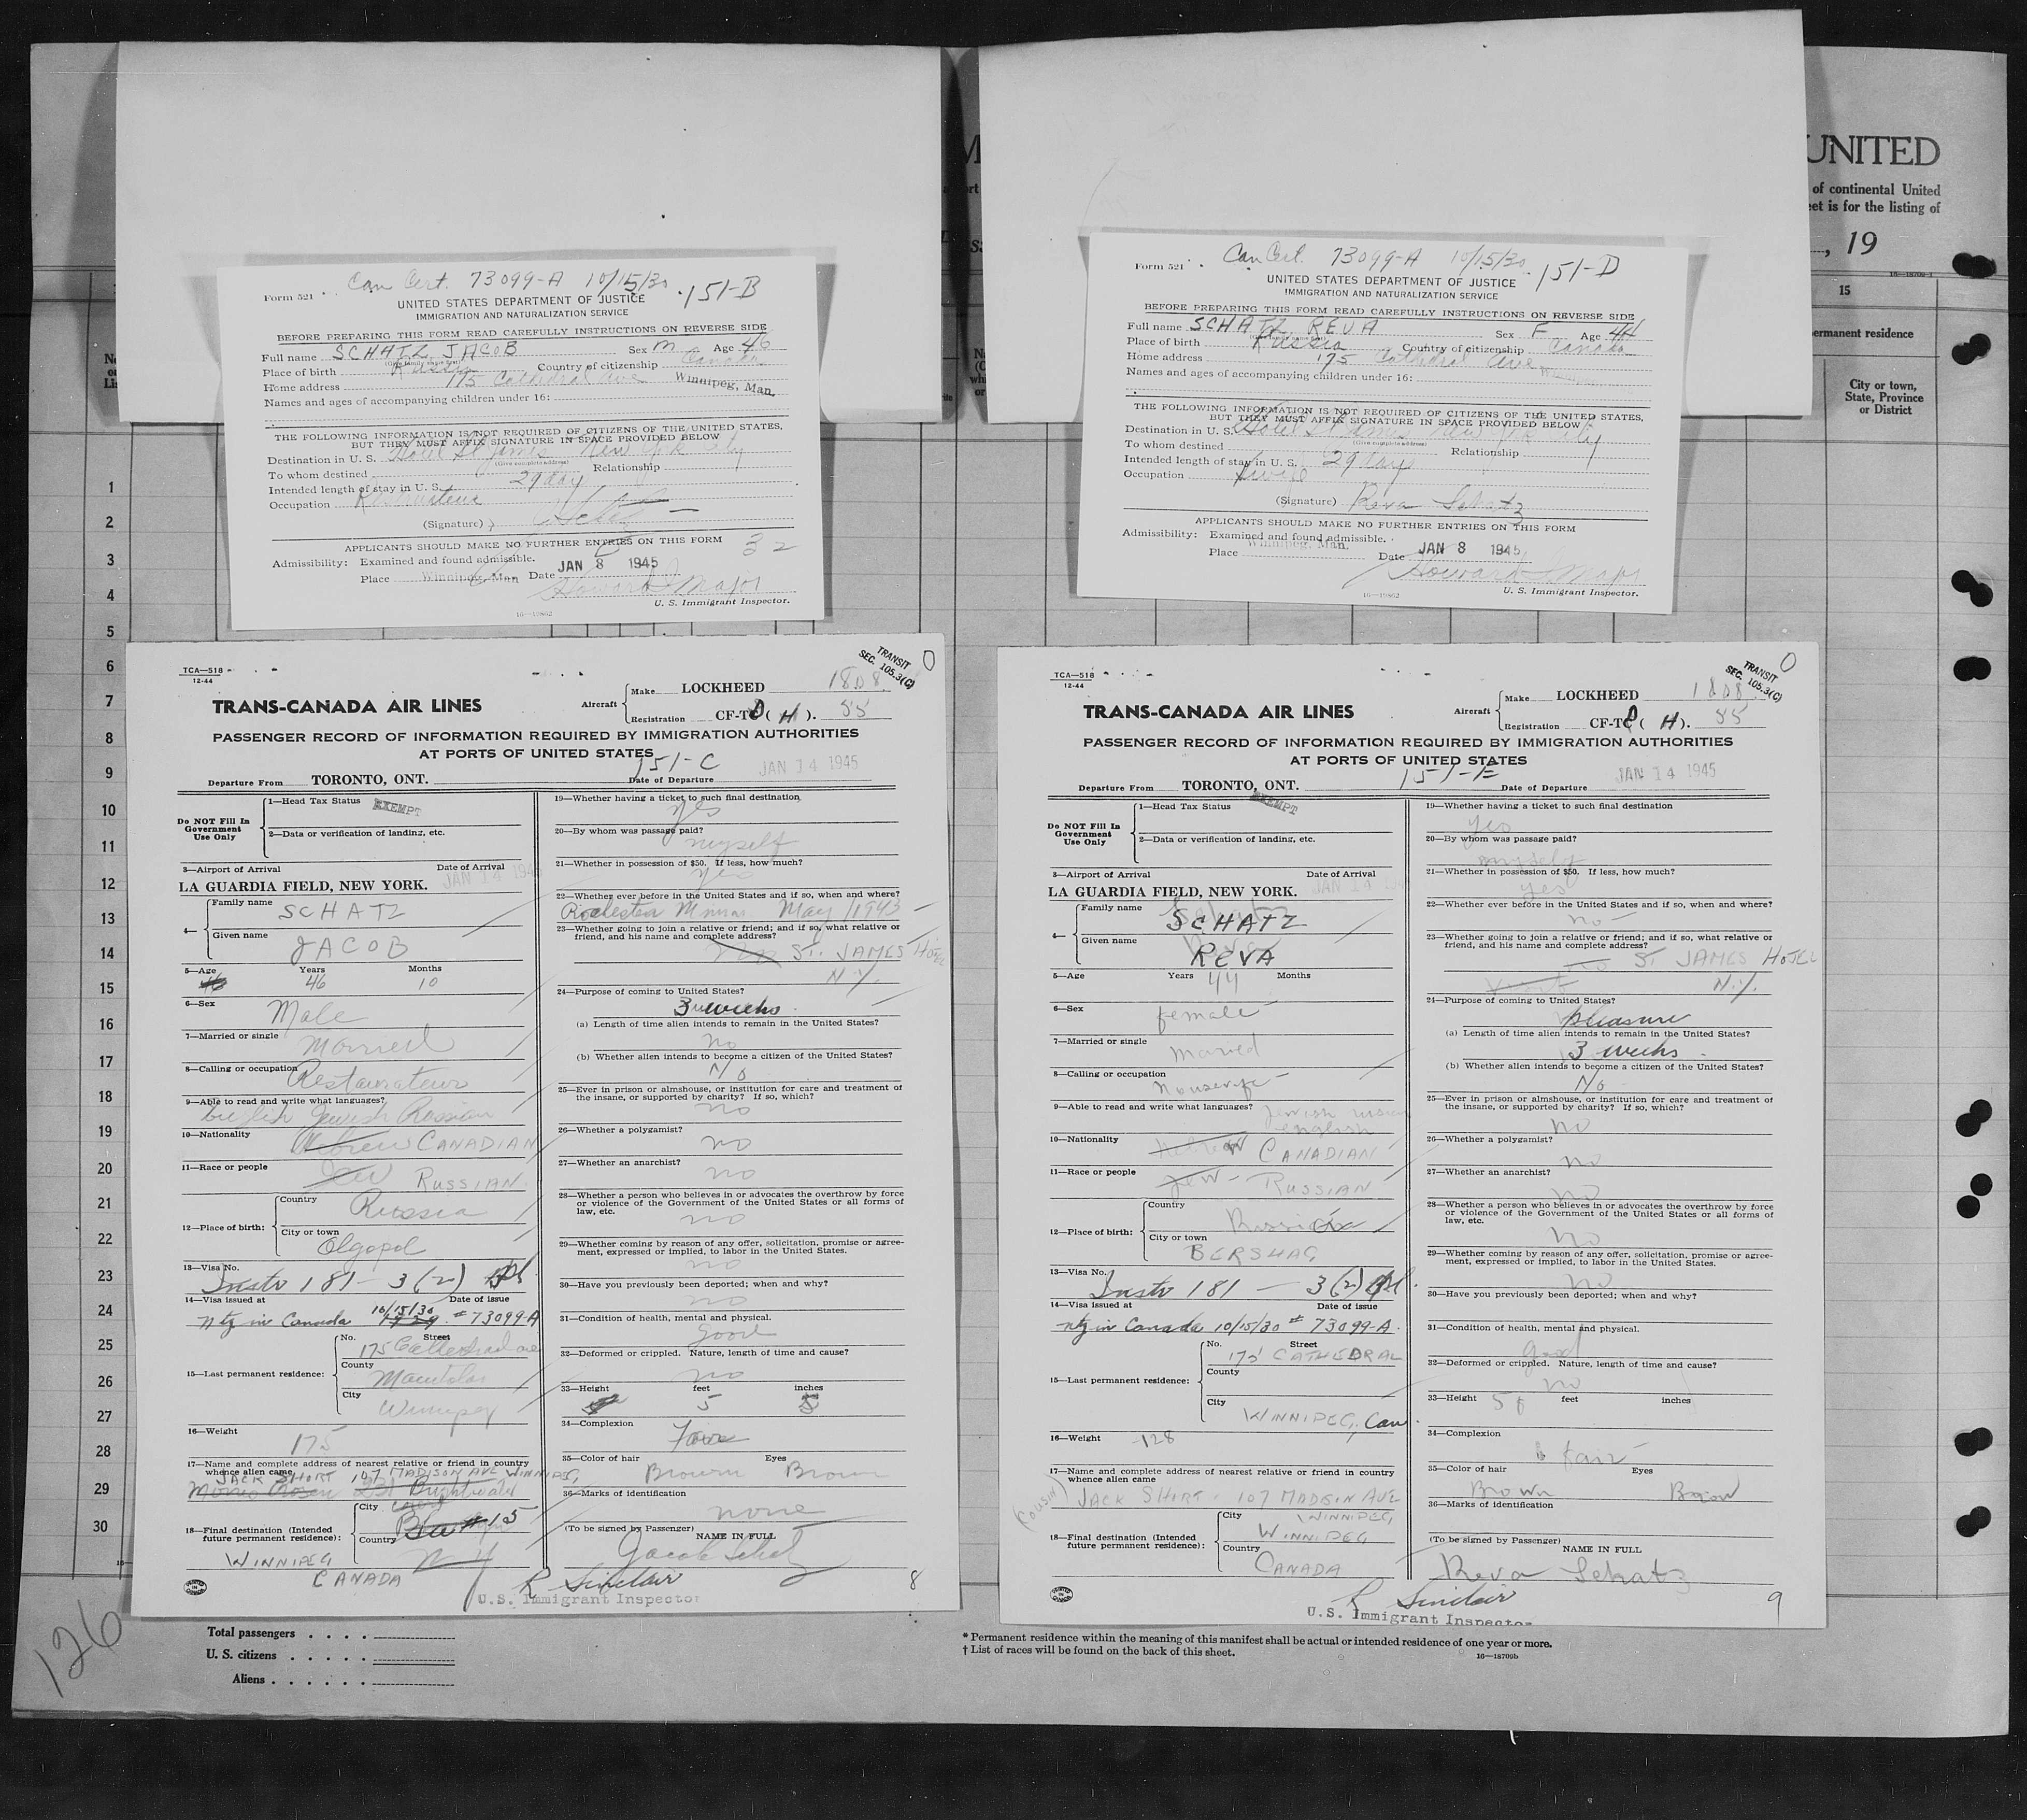 UNITED
of continental United
eet is for the listing of
, 19
16—18709-1
15
ermanent residence
City or town,
State, Province
or District
Can Cert. 73099-A 10/15/30 151-B
Form 521
UNITED STATES DEPARTMENT OF JUSTICE
IMMIGRATION AND NATURALIZATION SERVICE
BEFORE PREPARING THIS FORM READ CAREFULLY INSTRUCTIONS ON REVERSE SIDE
Full name SCHATZ JACOB Sex M Age 46
Place of birth Russia Country of citizenship Canada
Home address 175 Cathedral Ave Winnipeg, Man.
Names and ages of accompanying children under 16:
THE FOLLOWING INFORMATION IS NOT REQUIRED OF CITIZENS OF THE UNITED STATES,
BUT THEY MUST AFFIX SIGNATURE IN SPACE PROVIDED BELOW
Destination in U. S. Hotel St James New York City
(Give complete address)
To whom destined Relationship
Intended length of stay in U. S. 29 day
Occupation Restaurateur
(Signature)
APPLICANTS SHOULD MAKE NO FURTHER ENTRIES ON THIS FORM 32
Admissibility: Examined and found admissible.
Place Winnipeg, Man Date JAN 8 1945
Howard Major
U. S. Immigrant Inspector.
16—19862
Can Cert. 73099-A 10/15/30 151-D
Form 521
UNITED STATES DEPARTMENT OF JUSTICE
IMMIGRATION AND NATURALIZATION SERVICE
BEFORE PREPARING THIS FORM READ CAREFULLY INSTRUCTIONS ON REVERSE SIDE
Full name SCHATZ REVA Sex F Age 44
Place of birth Russia Country of citizenship Canada
Home address 175 Cathedral Ave Winnipeg
Names and ages of accompanying children under 16:
THE FOLLOWING INFORMATION IS NOT REQUIRED OF CITIZENS OF THE UNITED STATES,
BUT THEY MUST AFFIX SIGNATURE IN SPACE PROVIDED BELOW
Destination in U. S. Hotel St James New York City
(Give complete address)
To whom destined Relationship
Intended length of stay in U. S. 29 days
Occupation H wife
(Signature) Reva Schatz
APPLICANTS SHOULD MAKE NO FURTHER ENTRIES ON THIS FORM
Admissibility: Examined and found admissible.
Place Winnipeg, Man. Date JAN 8 1945
Howard Major
U. S. Immigrant Inspector.
16—19862
1
2
3
4
5
6
7
8
9
10
11
12
13
14
15
16
17
18
19
20
21
22
23
24
25
26
27
28
29
30
TCA—518
12-44
TRANSIT
SEC. 105.3(C)
0
TRANS-CANADA AIR LINES
Aircraft Make LOCKHEED 18.08
Registration CF-TC ( H ). 55
PASSENGER RECORD OF INFORMATION REQUIRED BY IMMIGRATION AUTHORITIES
AT PORTS OF UNITED STATES
151-C JAN 14 1945
Departure From TORONTO, ONT. Date of Departure
Do NOT Fill In
Government
Use Only
1—Head Tax Status EXEMPT
2—Data or verification of landing, etc.
3—Airport of Arrival Date of Arrival
LA GUARDIA FIELD, NEW YORK. JAN 14 1945
4— Family name SCHATZ
Given name JACOB
5—Age 46 Years 46 Months 10
6—Sex Male
7—Married or single Married
8—Calling or occupation Restaurateur
9—Able to read and write what languages?
English Jewish Russian
10—Nationality Hebrew CANADIAN
11—Race or people Jew RUSSIAN
12—Place of birth: Country Russia
City or town Olgopol
13—Visa No. Instr 181 - 3 (2)
14—Visa issued at Date of issue
ntz in Canada 10/15/30 1929 #73099-A
15—Last permanent residence: No. Street
175 Cathedral ave
County Manitoba
City Winnipeg
16—Weight 175
17—Name and complete address of nearest relative or friend in country
whence alien came
JACK SHORT 107 MADISON AVE WINNIPEG
18—Final destination (Intended
future permanent residence): City
Country N Y
WINNIPEG
CANADA
19—Whether having a ticket to such final destination
yes
20—By whom was passage paid?
myself
21—Whether in possession of $50. If less, how much?
yes
22—Whether ever before in the United States and if so, when and where?
Rochester Minn May 1943
23—Whether going to join a relative or friend; and if so, what relative or
friend, and his name and complete address?
ST. JAMES HOTEL
N.Y.
24—Purpose of coming to United States?
3 weeks
(a) Length of time alien intends to remain in the United States?
no
(b) Whether alien intends to become a citizen of the United States?
No
25—Ever in prison or almshouse, or institution for care and treatment of
the insane, or supported by charity? If so, which?
no
26—Whether a polygamist?
no
27—Whether an anarchist?
no
28—Whether a person who believes in or advocates the overthrow by force
or violence of the Government of the United States or all forms of
law, etc.
no
29—Whether coming by reason of any offer, solicitation, promise or agree-
ment, expressed or implied, to labor in the United States.
no
30—Have you previously been deported; when and why?
no
31—Condition of health, mental and physical.
good
32—Deformed or crippled. Nature, length of time and cause?
no
33—Height 5 feet 5 inches
34—Complexion Fair
35—Color of hair Brown Eyes Brown
36—Marks of identification
none
(To be signed by Passenger) NAME IN FULL
Jacob Schatz
R Sinclair
U.S. Immigrant Inspector
8
TCA—518
12-44
TRANSIT
SEC. 105.3(C)
0
TRANS-CANADA AIR LINES
Aircraft Make LOCKHEED 18.08
Registration CF-TC ( H ). 55
PASSENGER RECORD OF INFORMATION REQUIRED BY IMMIGRATION AUTHORITIES
AT PORTS OF UNITED STATES
151-E JAN 14 1945
Departure From TORONTO, ONT. Date of Departure
Do NOT Fill In
Government
Use Only
1—Head Tax Status EXEMPT
2—Data or verification of landing, etc.
3—Airport of Arrival Date of Arrival
LA GUARDIA FIELD, NEW YORK. JAN 14
4— Family name SCHATZ
Given name REVA
5—Age Years 44 Months
6—Sex female
7—Married or single Married
8—Calling or occupation Housewife
9—Able to read and write what languages? Jewish
english
10—Nationality Hebrew CANADIAN
11—Race or people Jew - RUSSIAN
12—Place of birth: Country Russia
City or town BERSHAG
13—Visa No. Instr 181 — 3 (2)
14—Visa issued at Date of issue
ntz in Canada 10/15/30 # 73099-A
15—Last permanent residence: No. Street
175 CATHEDRAL
County
City WINNIPEG, Can.
16—Weight 128
17—Name and complete address of nearest relative or friend in country
whence alien came
(COUSIN) JACK SHORT. 107 MADISON AVE
WINNIPEG,
18—Final destination (Intended
future permanent residence): City WINNIPEG
Country CANADA
19—Whether having a ticket to such final destination
yes
20—By whom was passage paid?
myself
21—Whether in possession of $50. If less, how much?
yes
22—Whether ever before in the United States and if so, when and where?
no
23—Whether going to join a relative or friend; and if so, what relative or
friend, and his name and complete address?
no ST JAMES HOTEL
N.Y.
24—Purpose of coming to United States?
pleasure
(a) Length of time alien intends to remain in the United States?
3 weeks
(b) Whether alien intends to become a citizen of the United States?
No
25—Ever in prison or almshouse, or institution for care and treatment of
the insane, or supported by charity? If so, which?
no
26—Whether a polygamist?
no
27—Whether an anarchist?
no
28—Whether a person who believes in or advocates the overthrow by force
or violence of the Government of the United States or all forms of
law, etc.
no
29—Whether coming by reason of any offer, solicitation, promise or agree-
ment, expressed or implied, to labor in the United States.
no
30—Have you previously been deported; when and why?
31—Condition of health, mental and physical.
good
32—Deformed or crippled. Nature, length of time and cause?
no
33—Height 5 feet inches
34—Complexion
fair
35—Color of hair Brown Eyes Brown
36—Marks of identification
(To be signed by Passenger) NAME IN FULL
Reva Schatz
R Sinclair
U.S. Immigrant Inspector
9
126
Total passengers
U. S. citizens
Aliens
* Permanent residence within the meaning of this manifest shall be actual or intended residence of one year or more.
† List of races will be found on the back of this sheet.
16—18709b